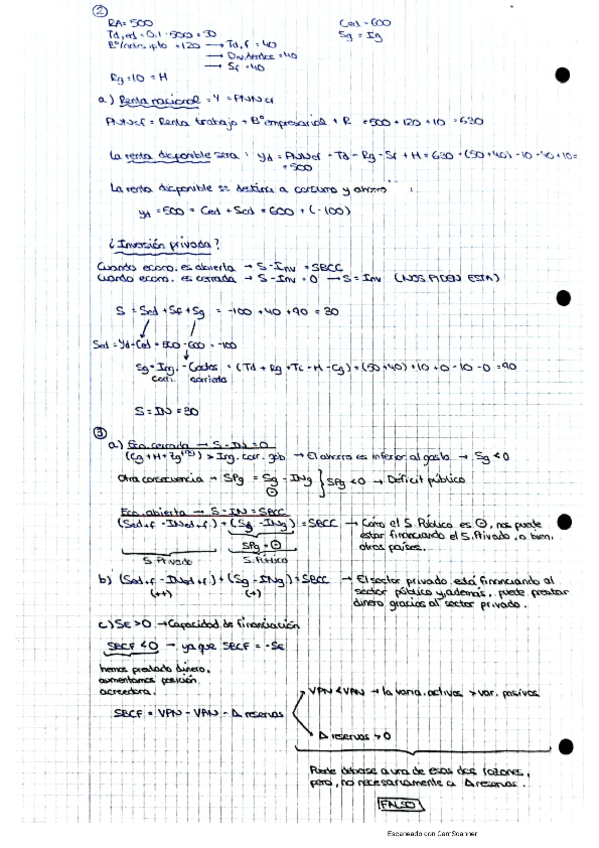 ②
RA = 500 Ced = 600
Td,ed = 0,1 · 500 = 50 Sg = Ig
Bº/antes impto = 120 → Td,f = 40
→ Dividendos = 40
→ Sf = 40
Rg = 10 = H
a) Renta nacional = Y = PNNcf
PNNcf = Renta trabajo + Bº empresarial + R = 500 + 120 + 10 = 630
La renta disponible será : Yd = PNNcf - Td - Rg - Sf + H = 630 - (50+40) - 10 - 40 + 10 =
= 500
La renta disponible se destina a consumo y ahorro :
yd = 500 = Ced + Sed = 600 + (-100)
¿Inversión privada?
Cuando econo. es abierta → S - Inv = SBCC
Cuando econo. es cerrada → S - Inv = 0 → S = Inv (NOS PIDEN ESTA)
S = Sed + Sf + Sg = -100 + 40 + 90 = 30
Sed = Yd - Ced = 500 - 600 = -100
Sg = Ing. - Gastos = (Td + Rg + Tc - H - Cg) = (50+40) + 10 + 0 - 10 - 0 = 90
corri. corriente
S = IN = 30
③
a) Eco. cerrada → S - IN = 0
(Cg + H + Zg) > Ing. corr. gob → El ahorro es inferior al gasto → Sg < 0
Otra consecuencia → SPg = Sg - INg } SPg < 0 → Déficit público
⊖
Eco. abierta → S - IN = SBCC
(Sed,f - INed,f) + (Sg - INg) = SBCC → Como el S. Público es ⊖, nos puede
estar financiando el S. Privado, o bien,
SPg = ⊖ otros países.
S. Privado S. Público
b) (Sed,f - INed,f) + (Sg - INg) = SBCC → El sector privado está financiando al
(++) (+) sector público y además, puede prestar
dinero gracias al sector privado.
c) SE > 0 → Capacidad de financiación
SBCF < 0 → ya que SBCF = -SE
hemos prestado dinero,
aumentamos posición
acreedora.
VPN < VAN → la varia. activos > var. pasivos
SBCF = VPN - VAN - Δ reservas
Δ reservas > 0
Puede deberse a una de esas dos razones,
pero, no necesariamente a Δ reservas.
FALSO
Escaneado con CamScanner